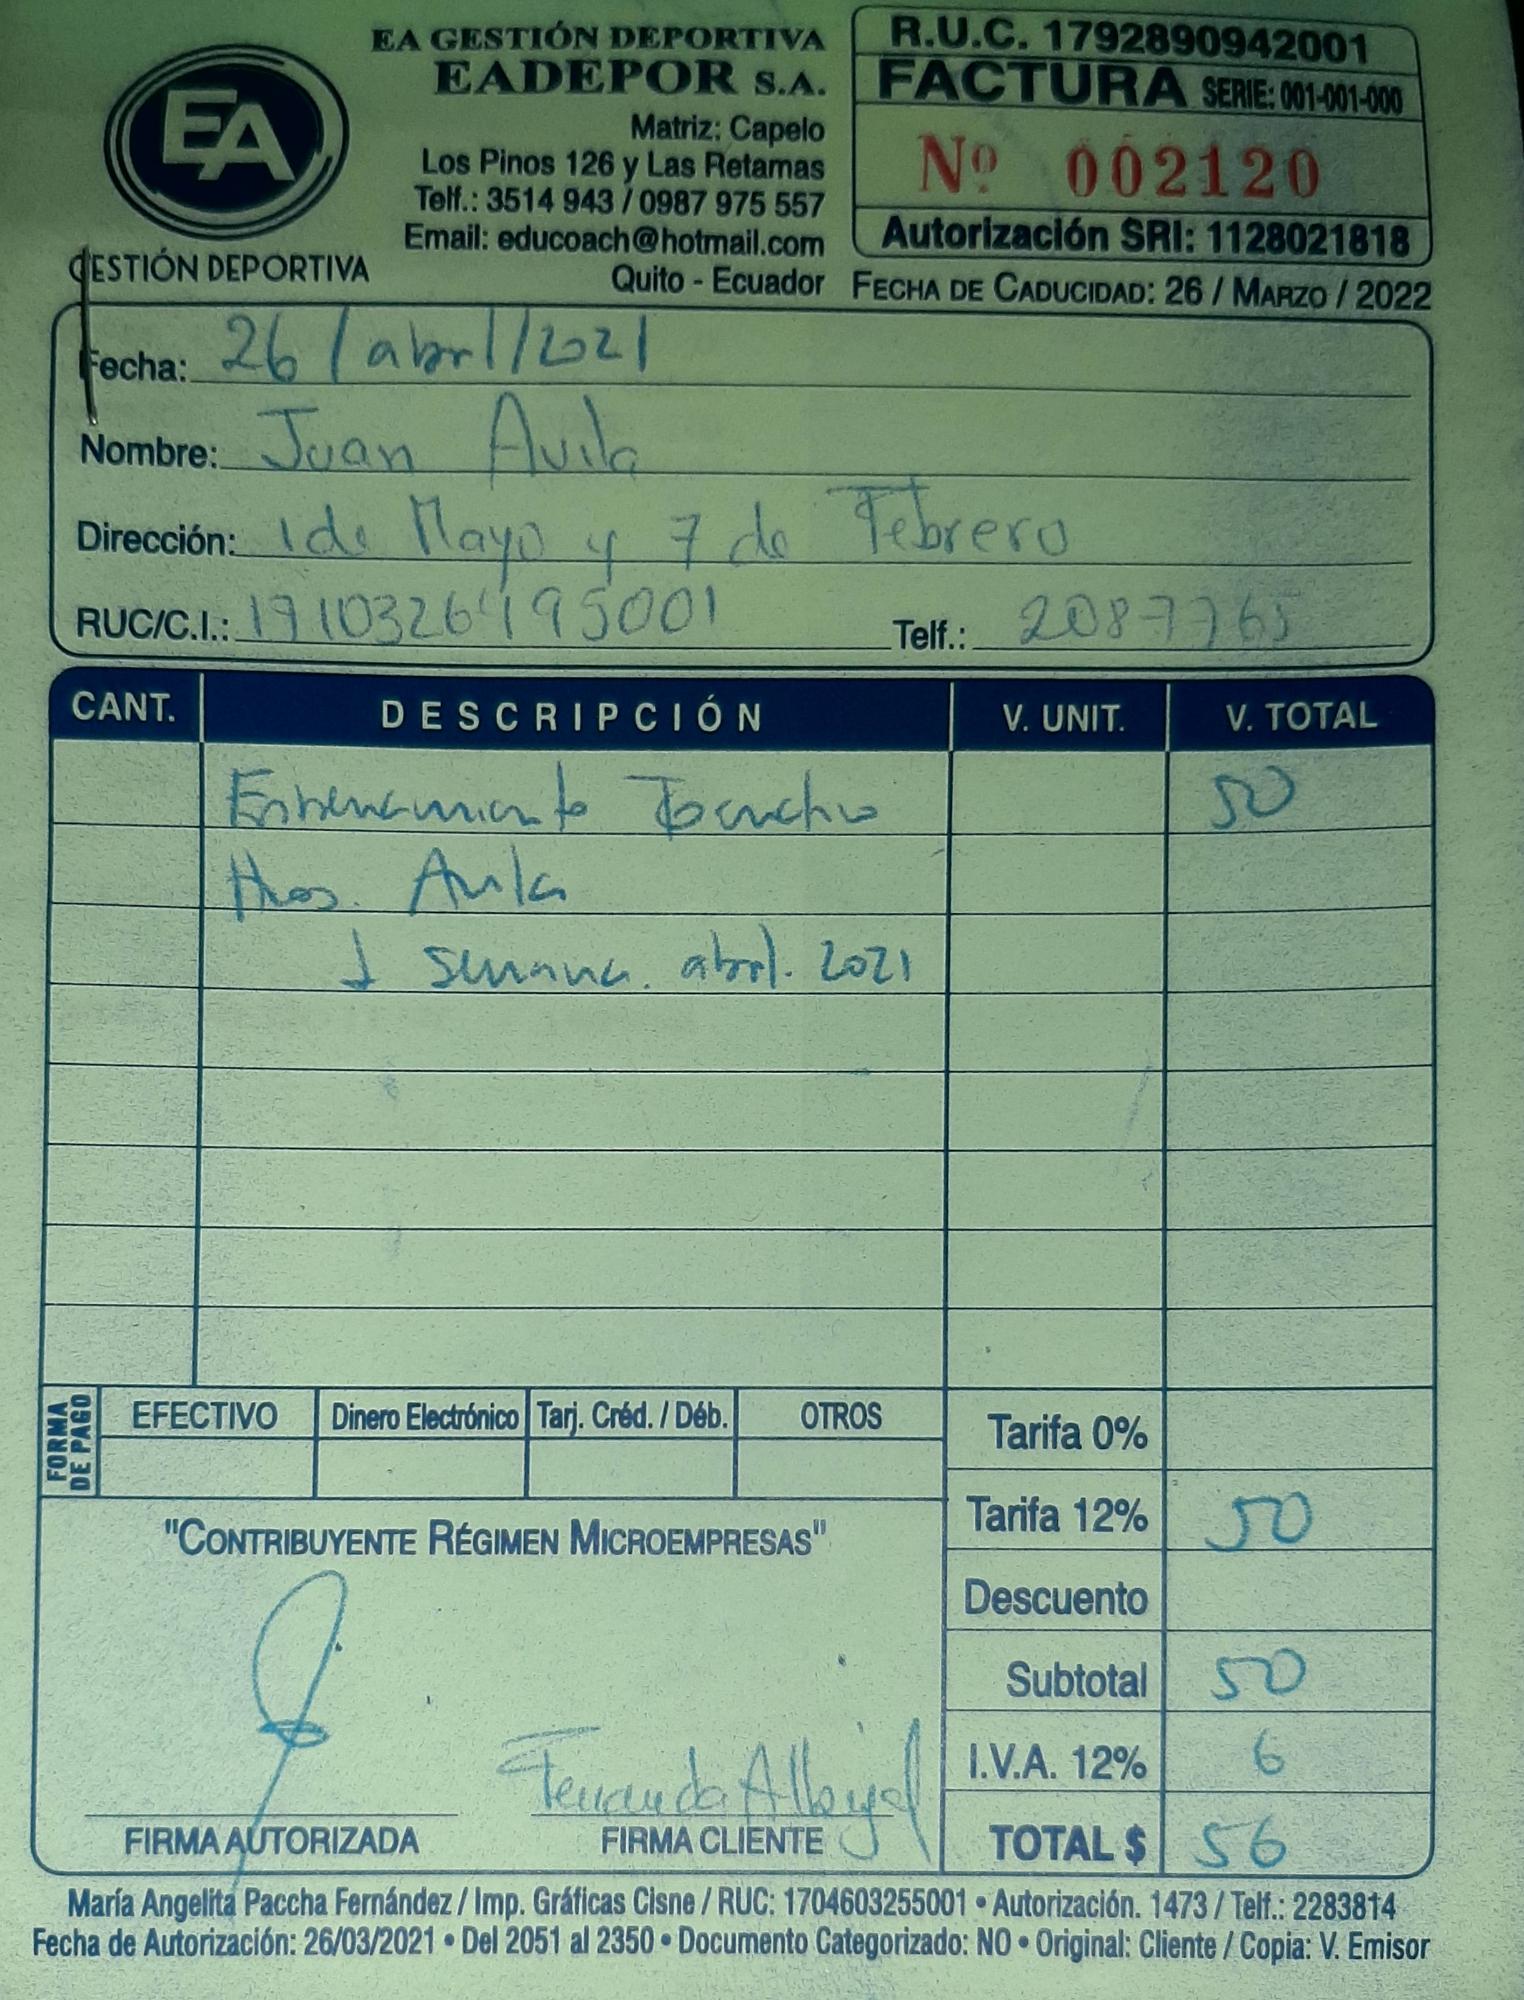 EA
GESTIÓN DEPORTIVA
EA GESTIÓN DEPORTIVA
EADEPOR S.A.
Matriz: Capelo
Los Pinos 126 y Las Retamas
Telf.: 3514 943 / 0987 975 557
Email: educoach@hotmail.com
Quito - Ecuador
R.U.C. 1792890942001
FACTURA SERIE: 001-001-000
Nº 002120
Autorización SRI: 1128021818
FECHA DE CADUCIDAD: 26 / MARZO / 2022
Fecha: 26 / abril / 2021
Nombre: Juan Avila
Dirección: 1 de Mayo y 7 de Febrero
RUC/C.I.: Telf.: 2087765
CANT. DESCRIPCIÓN V. UNIT. V. TOTAL
Entrenamiento 50
Hnos. Avila
1 semana. abril. 2021
FORMA DE PAGO EFECTIVO Dinero Electrónico Tarj. Créd. / Déb. OTROS
Tarifa 0%
Tarifa 12% 50
"CONTRIBUYENTE RÉGIMEN MICROEMPRESAS"
Descuento
Subtotal 50
I.V.A. 12% 6
TOTAL $ 56
Fernanda
FIRMA AUTORIZADA FIRMA CLIENTE
María Angelita Paccha Fernández / Imp. Gráficas Cisne / RUC: 1704603255001 • Autorización. 1473 / Telf.: 2283814
Fecha de Autorización: 26/03/2021 • Del 2051 al 2350 • Documento Categorizado: NO • Original: Cliente / Copia: V. Emisor